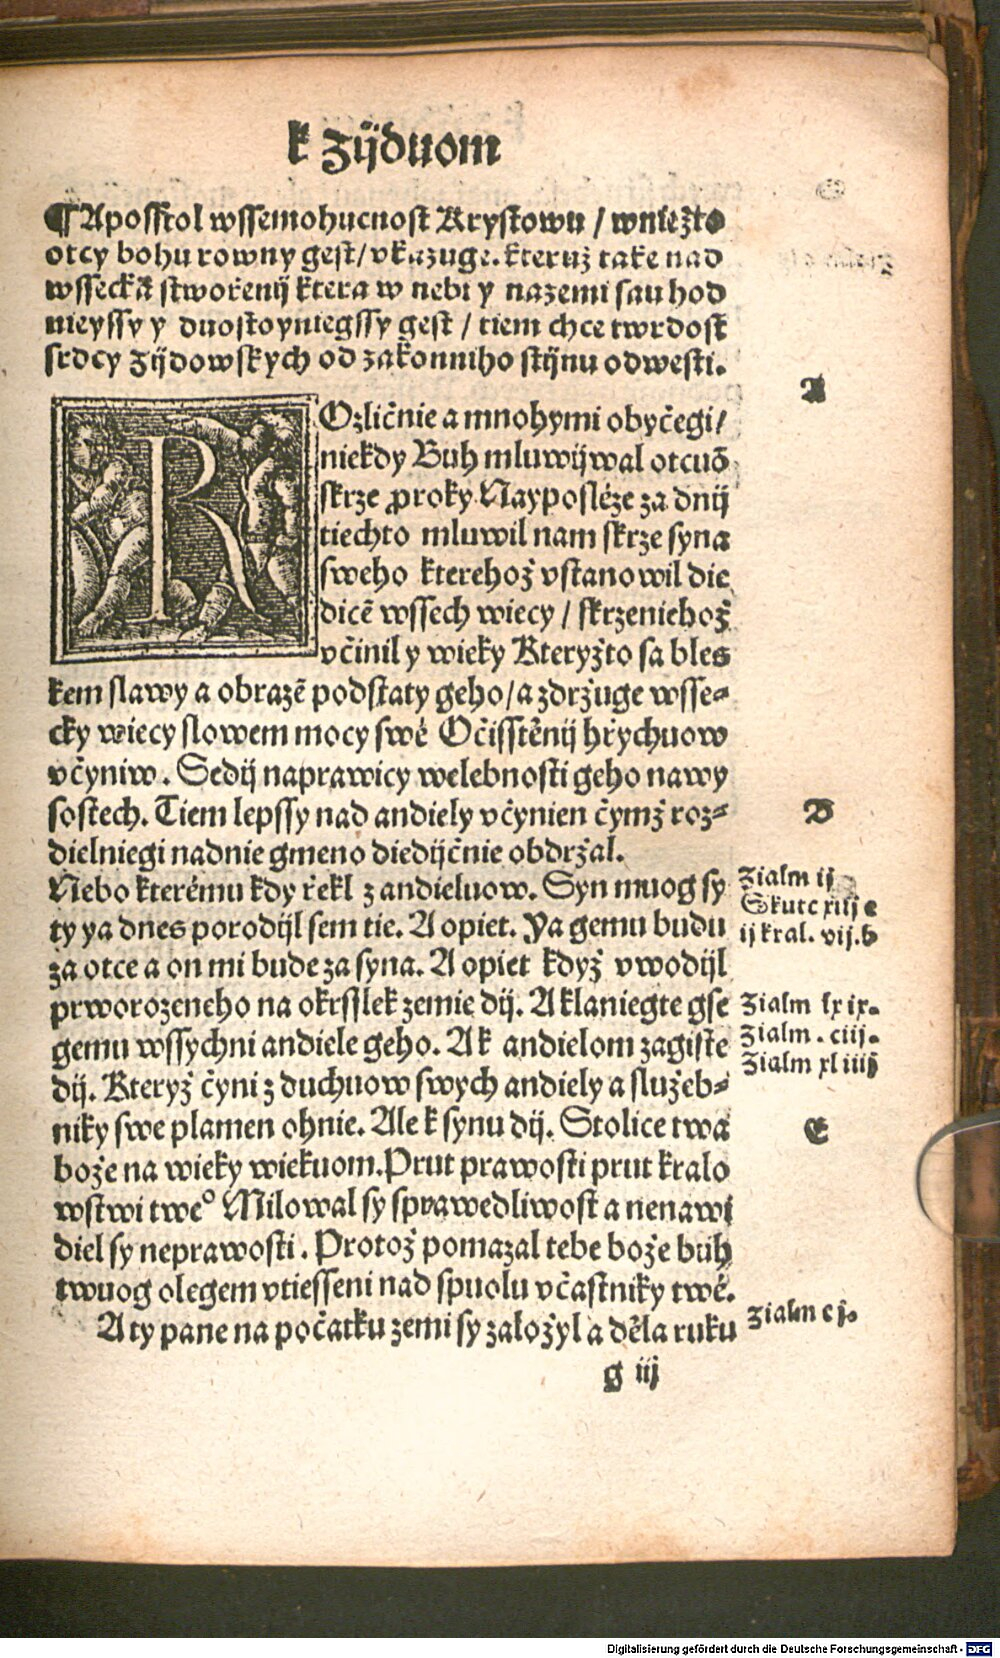 k Zijduom
¶ Aposstol wssemohucnost Krystowu / wniežto
otcy bohu rowny gest / vkazuge. kteruž take nad
wssecka stwořenij ktera w nebi y nazemi sau hod
nieyssy y duostoyniegssy gest / tiem chce twrdost
srdcy Zijdowskych od zakonniho stijnu odwesti.
A
ROzličnie a mnohymi obyčegi /
niekdy Buh mluwijwal otcuō
skrze ꝓroky Nayposléze za dnij
tiechto mluwil nam skrze syna
sweho kterehož vstanowil die
dicē wssech wiecy / skrzeniehož
včinil y wieky Kteryžto sa bles
kem slawy a obrazē podstaty geho / a zdržuge wsse⸗
cky wiecy slowem mocy swé Očisstěnij hřychuow
včyniw. Sedij naprawicy welebnosti geho nawy
sostech. Tiem lepssy nad andiely včynien čymž roz⸗
dielniegi nadnie gmeno diedijčnie obdržal.
B
Nebo kterému kdy řekl z andieluow. Syn muog sy
ty ya dnes porodijl sem tie. A opiet. Ya gemu budu
za otce a on mi bude za syna. A opiet když vwodijl
prworozeneho na okrslek zemie dij. A klaniegte gse
gemu wssychni andiele geho. A k andielom zagiste
dij. Kteryž čyni z duchuow swych andiely a služeb⸗
niky swe plamen ohnie. Ale k synu dij. Stolice twa
bože na wieky wiekuom. Prut prawosti prut kralo
wstwi tweº Milowal sy sprawedliwost a nenawi
diel sy neprawosti. Protož pomazal tebe bože buh
twuog olegem vtiesseni nad spuolu včastniky twé.
A ty pane na počatku zemi sy založyl a děla ruku
Zialm ij
Skutc xiij e
ij kral. vij. b
Zialm lxix.
Zialm. ciij.
Zialm xliiij
C
Zialm cj.
g iij
Digitalisierung gefördert durch die Deutsche Forschungsgemeinschaft - DFG